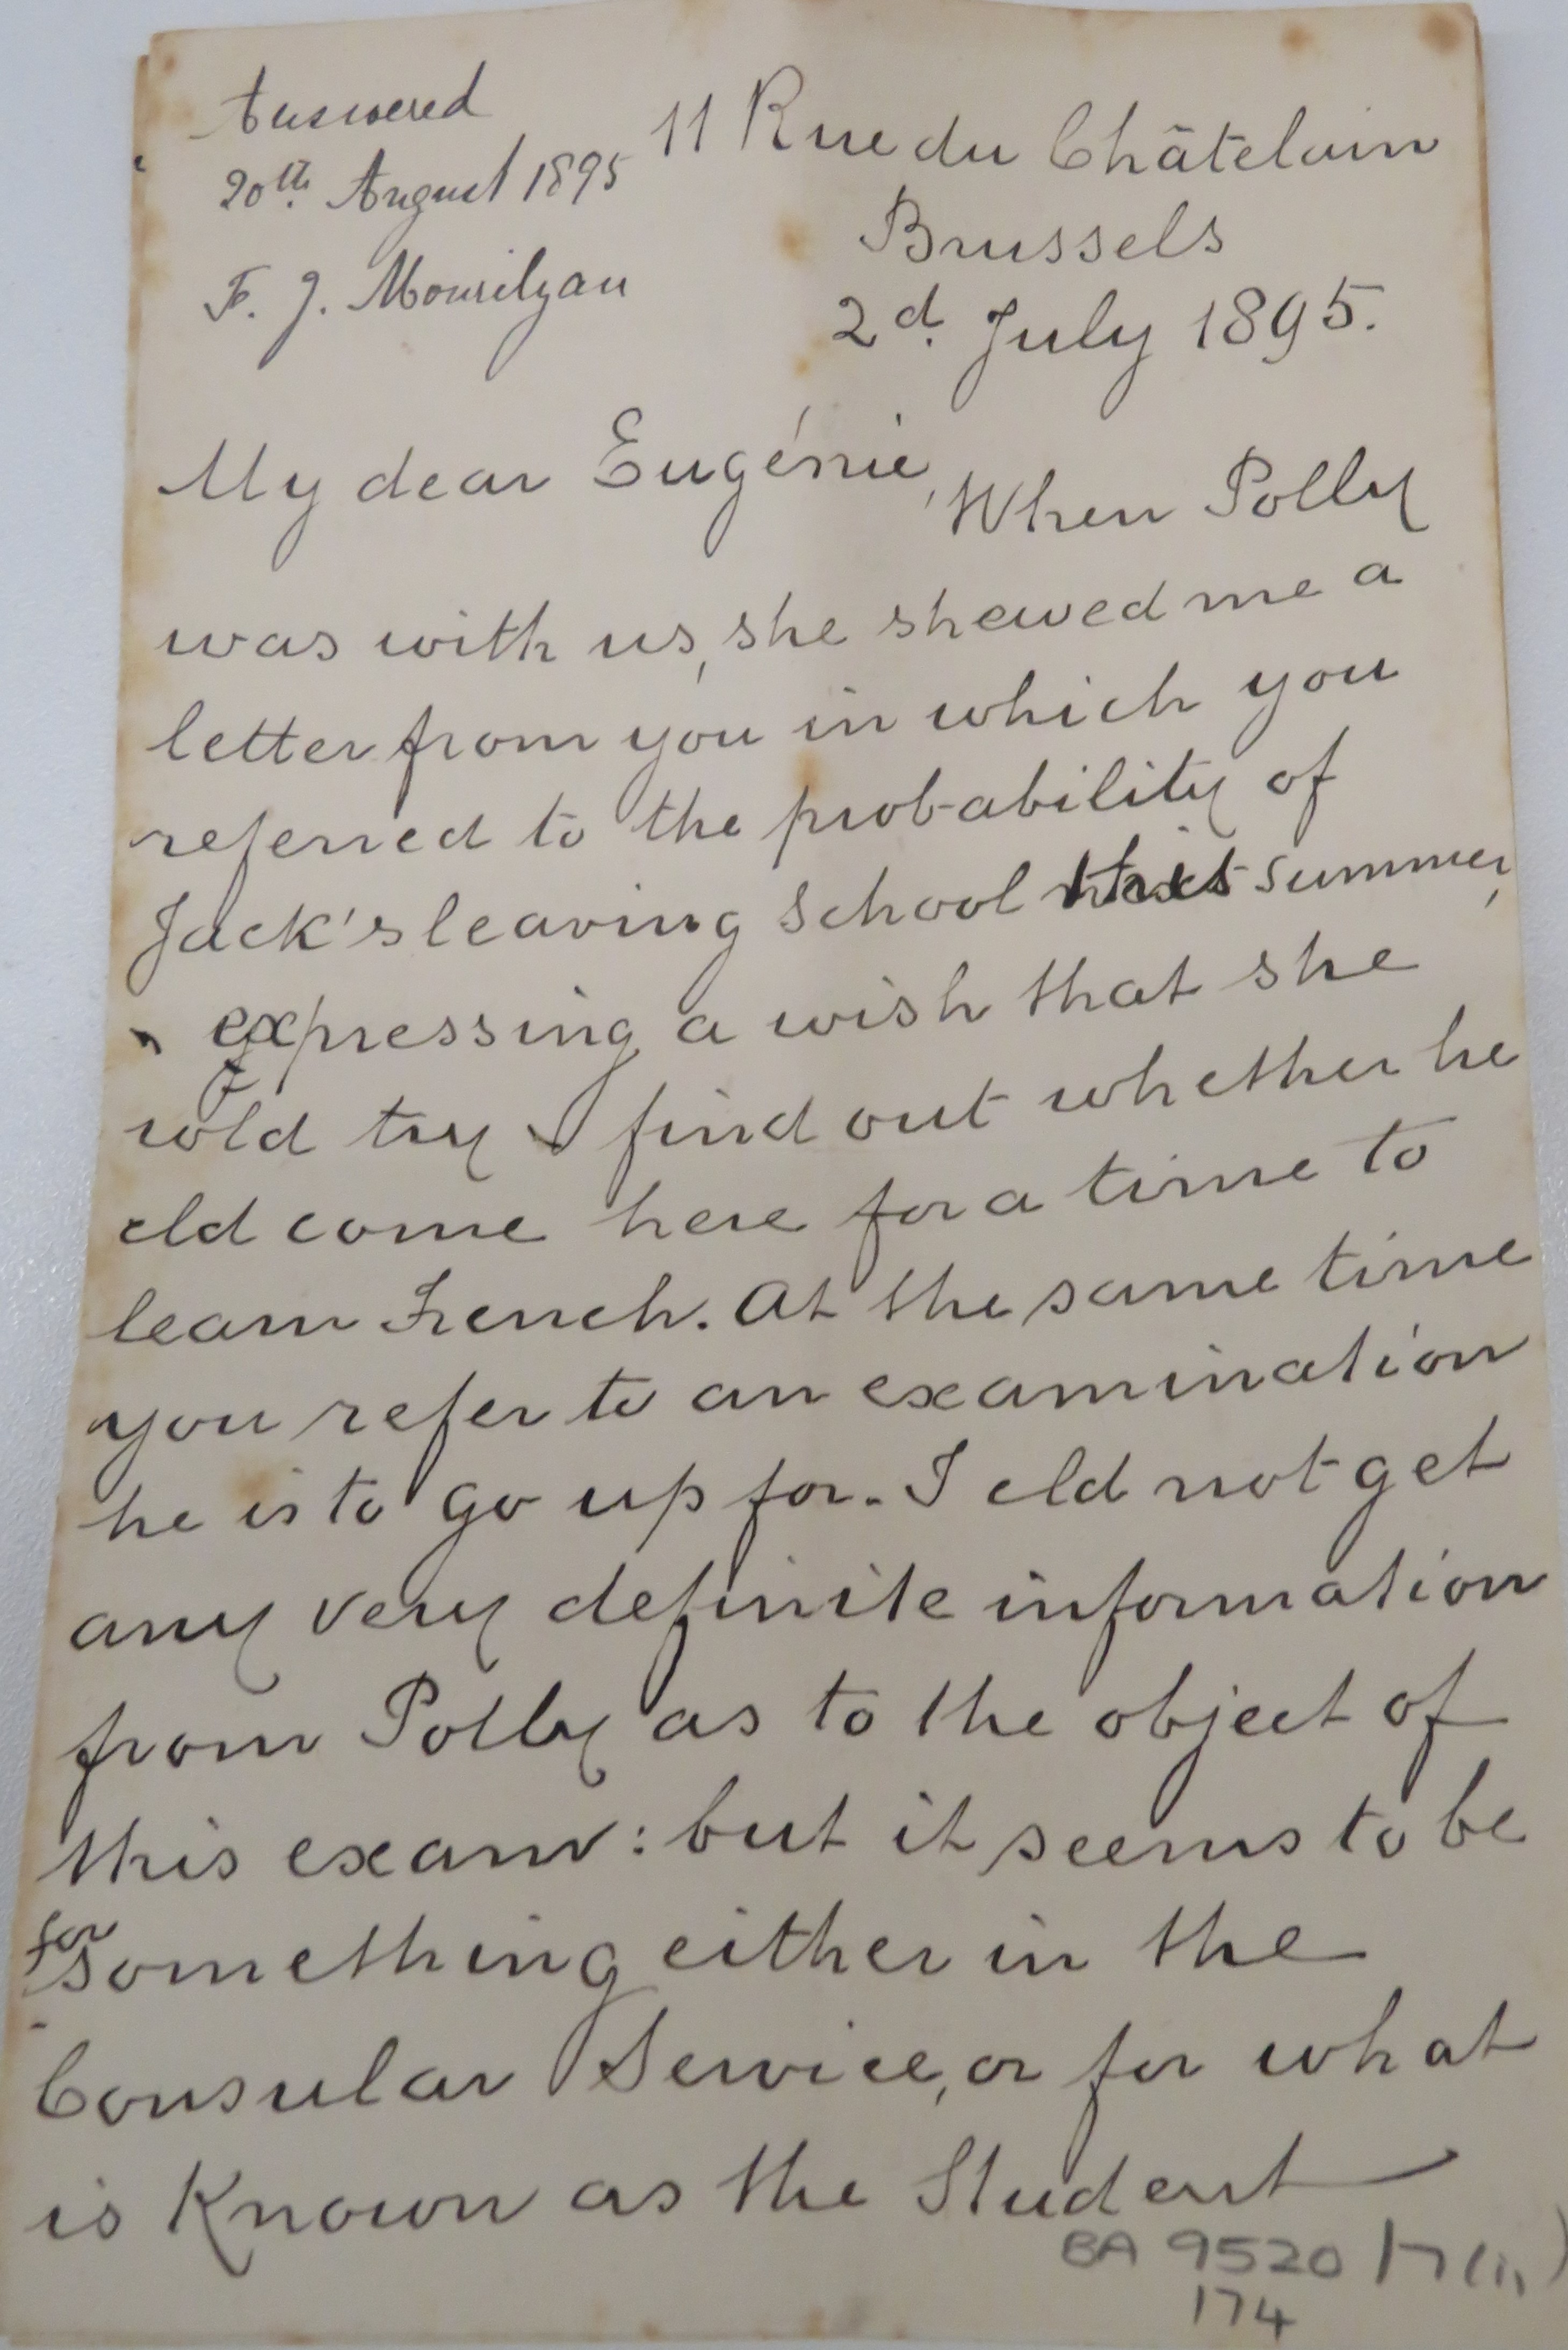 Answered
20th. August 1895
F. J. Mourilyan
11 Rue du Châtelain
Brussels
2d. July 1895.
My dear Eugénie, When Polly
was with us, she shewed me a
letter from you in which you
referred to the probability of
Jack's leaving school this summer,
& expressing a wish that she
wld try & find out whether he
cld come here for a time to
learn French. At the same time
you refer to an examination
he is to go up for. I cld not get
any very definite information
from Polly as to the object of
this exam: but it seems to be
for something either in the
Consular Service, or for what
is known as the Student
BA 9520
174